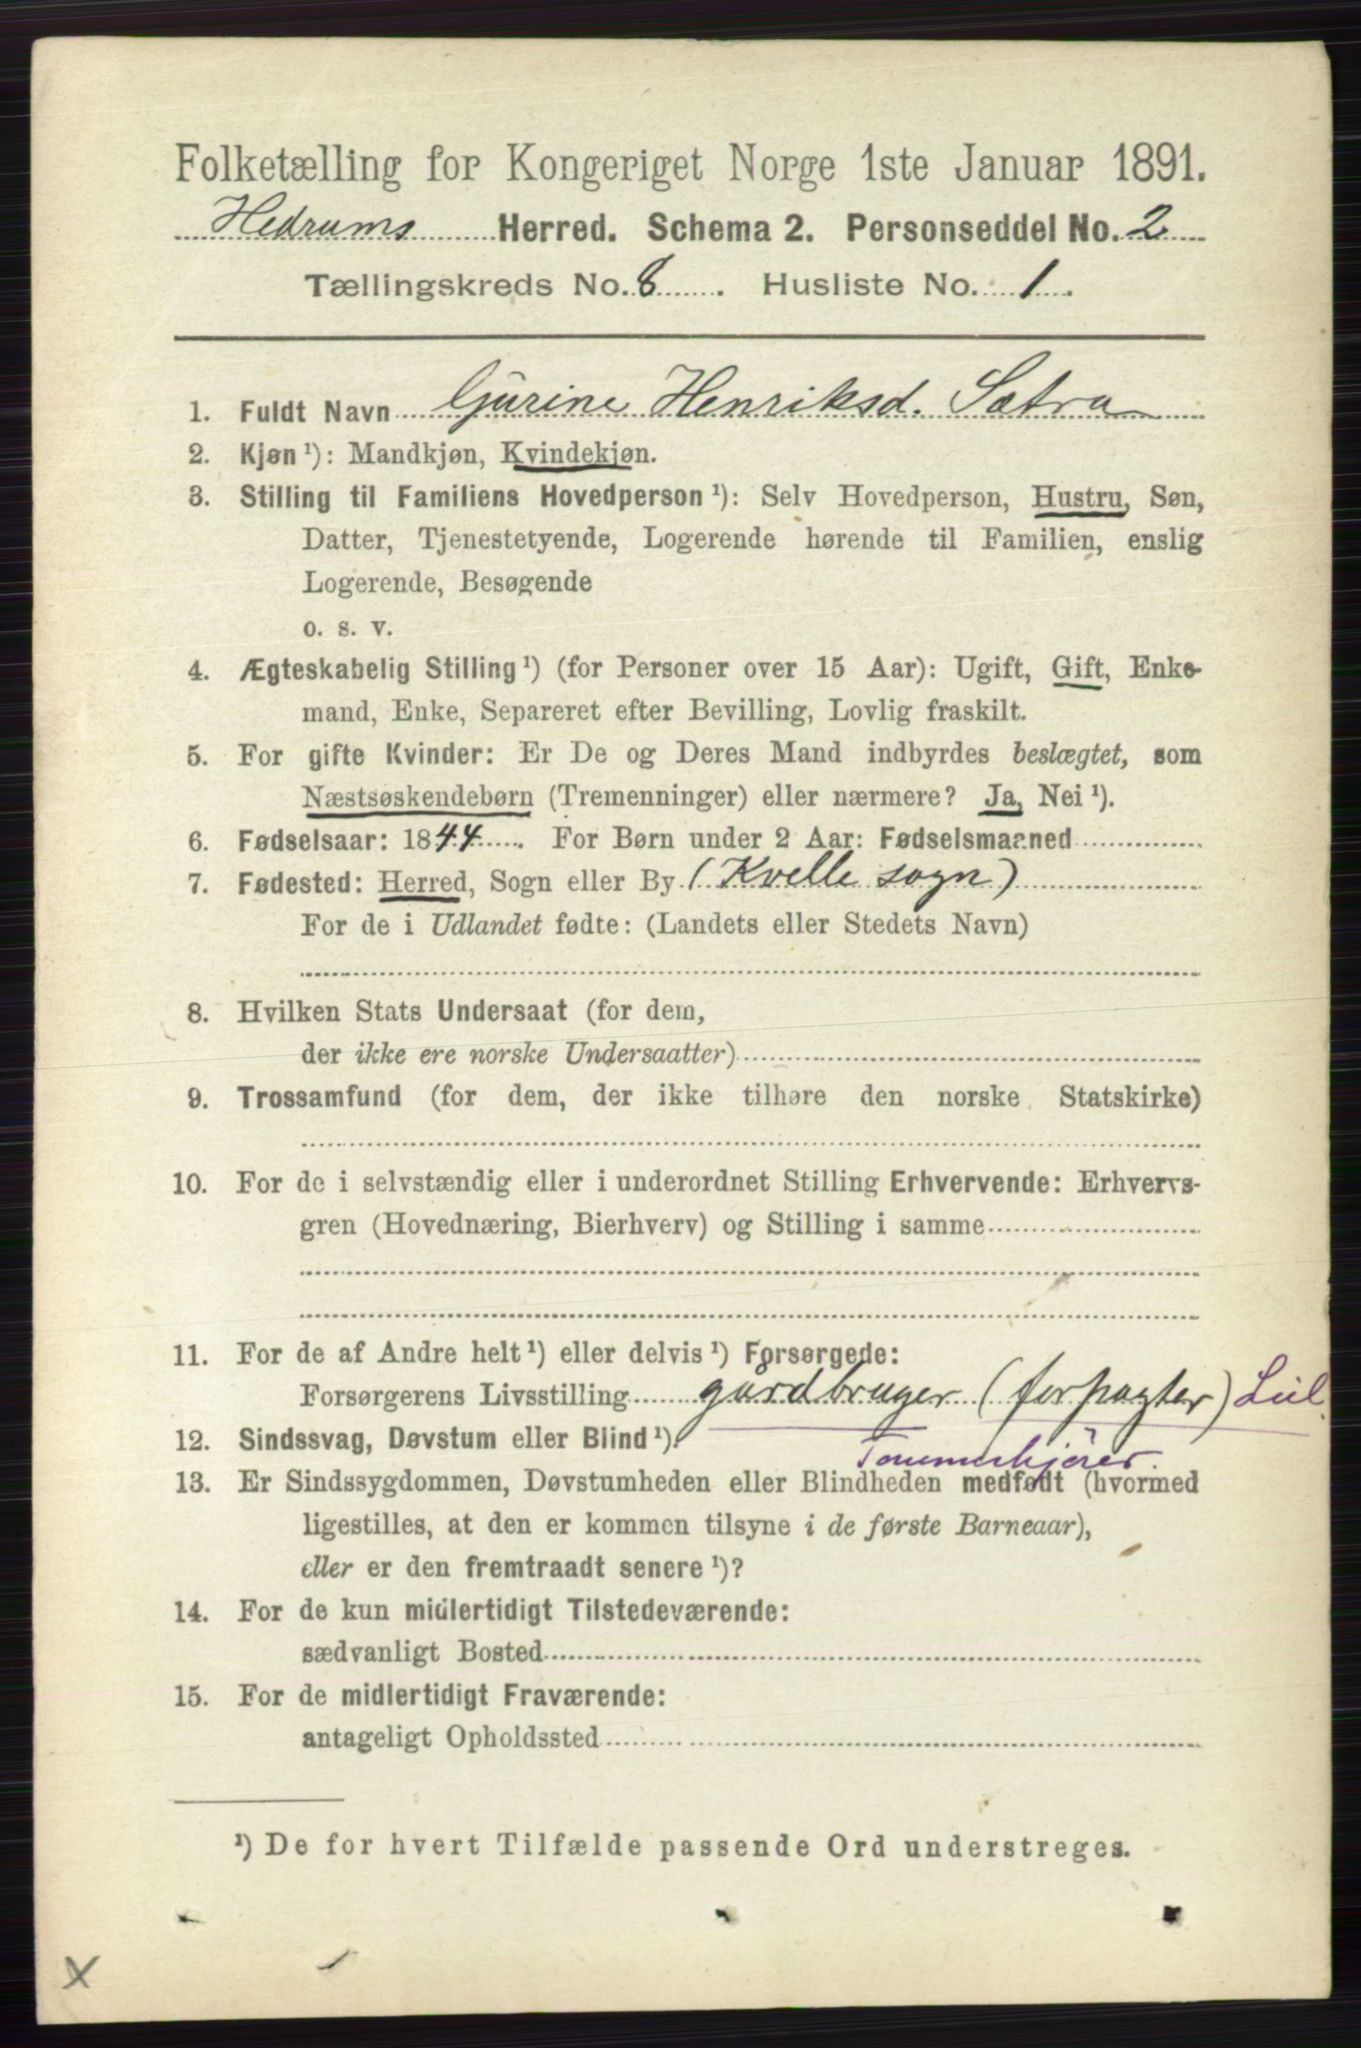 Folketælling for Kongeriget Norge 1ste Januar 1891.
Hedrums Herred. Schema 2. Personseddel No. 2
Tællingskreds No. 8. Husliste No. 1.
1. Fuldt Navn Gurine Henriksd. Sætra
2. Kjøn ¹): Mandkjøn, Kvindekjøn.
3. Stilling til Familiens Hovedperson ¹): Selv Hovedperson, Hustru, Søn,
Datter, Tjenestetyende, Logerende hørende til Familien, enslig
Logerende, Besøgende
o. s. v.
4. Ægteskabelig Stilling ¹) (for Personer over 15 Aar): Ugift, Gift, Enke-
mand, Enke, Separeret efter Bevilling, Lovlig fraskilt.
5. For gifte Kvinder: Er De og Deres Mand indbyrdes beslægtet, som
Næstsøskendebørn (Tremenninger) eller nærmere? Ja, Nei ¹).
6. Fødselsaar: 1844. For Børn under 2 Aar: Fødselsmaaned
7. Fødested: Herred, Sogn eller By (Kvelle sogn)
For de i Udlandet fødte: (Landets eller Stedets Navn)
8. Hvilken Stats Undersaat (for dem,
der ikke ere norske Undersaatter)
9. Trossamfund (for dem, der ikke tilhøre den norske Statskirke)
10. For de i selvstændig eller i underordnet Stilling Erhvervende: Erhvervs-
gren (Hovednæring, Bierhverv) og Stilling i samme
11. For de af Andre helt ¹) eller delvis ¹) Forsørgede:
Forsørgerens Livsstilling gårdbruger (forpagter)
12. Sindssvag, Døvstum eller Blind ¹).
Tømmerkjører.
13. Er Sindssygdommen, Døvstumheden eller Blindheden medfødt (hvormed
ligestilles, at den er kommen tilsyne i de første Barneaar),
eller er den fremtraadt senere ¹)?
14. For de kun midlertidigt Tilstedeværende:
sædvanligt Bosted
15. For de midlertidigt Fraværende:
antageligt Opholdssted
¹) De for hvert Tilfælde passende Ord understreges.
X